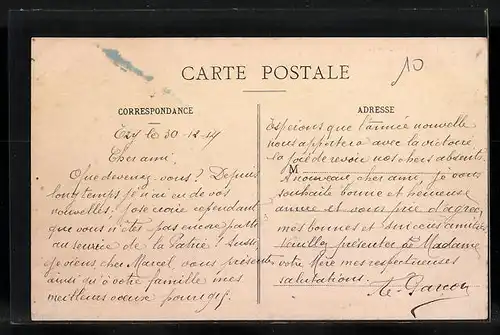 10
CARTE POSTALE
CORRESPONDANCE
ADRESSE
Ezy le 30-12-14
Cher ami.
Que devenez-vous ? Depuis
longtemps je n'ai eu de vos
nouvelles. J'ose croire cependant
que vous n'êtes pas encore parti
au service de la Patrie ! Aussi
je viens cher Marcel, vous présenter
ainsi qu'à votre famille mes
meilleurs vœux pour 1915.
Espérons que l'année nouvelle
nous apportera avec la victoire
la joie de revoir nos chers absents.
M
A nouveau, cher ami, je vous
souhaite bonne et heureuse
année et vous prie d'agréer
mes bonnes et sincères amitiés
Veuillez présenter à Madame
votre Mère mes respectueuses
salutations.
Garçon